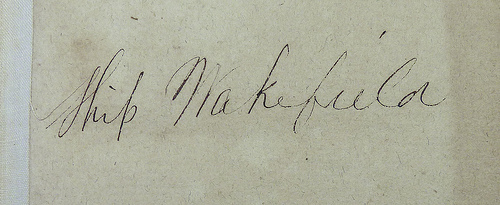 Ship Wakefield